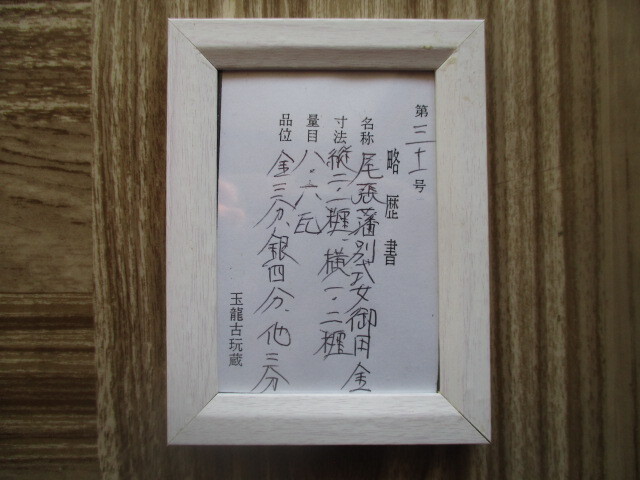 第三十一号
略歴書
名称 尾張藩別式女御用金
寸法 縦二.一糎、横一.二糎
量目 八.六瓦
品位 金三分、銀四分、他三分
玉龍古玩蔵